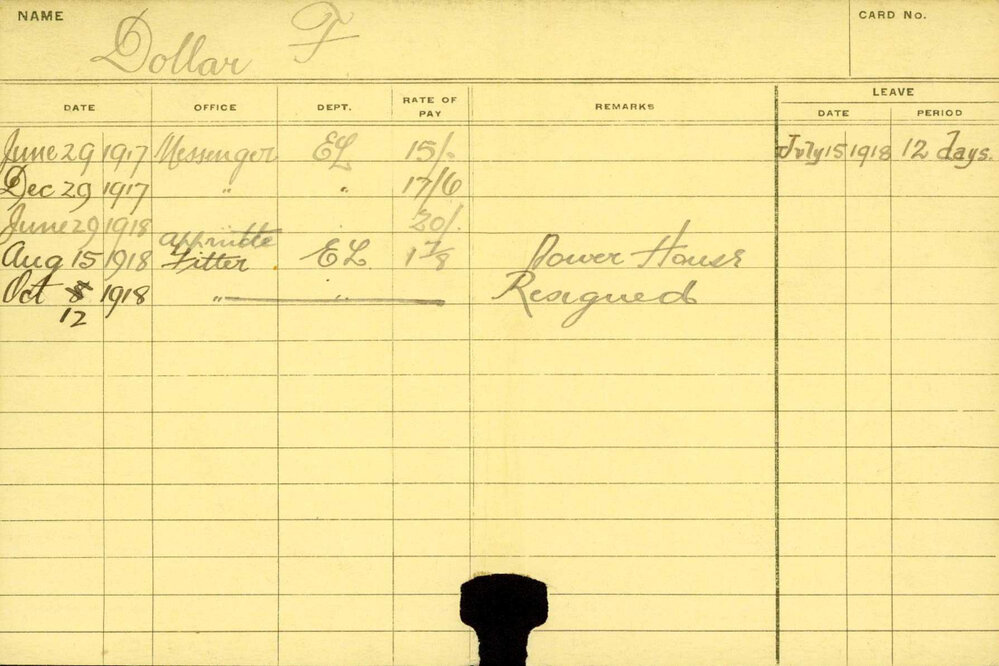 NAME Dollar F CARD No.
DATE OFFICE DEPT. RATE OF PAY REMARKS LEAVE DATE PERIOD
June 29 1917 Messenger EL 15/- July 15 1918 12 days.
Dec 29 1917 " " 17/6
June 29 1918 20/-
Aug 15 1918 appntce Fitter EL 1 7/8 Power House
Oct 8 12 1918 " " Resigned